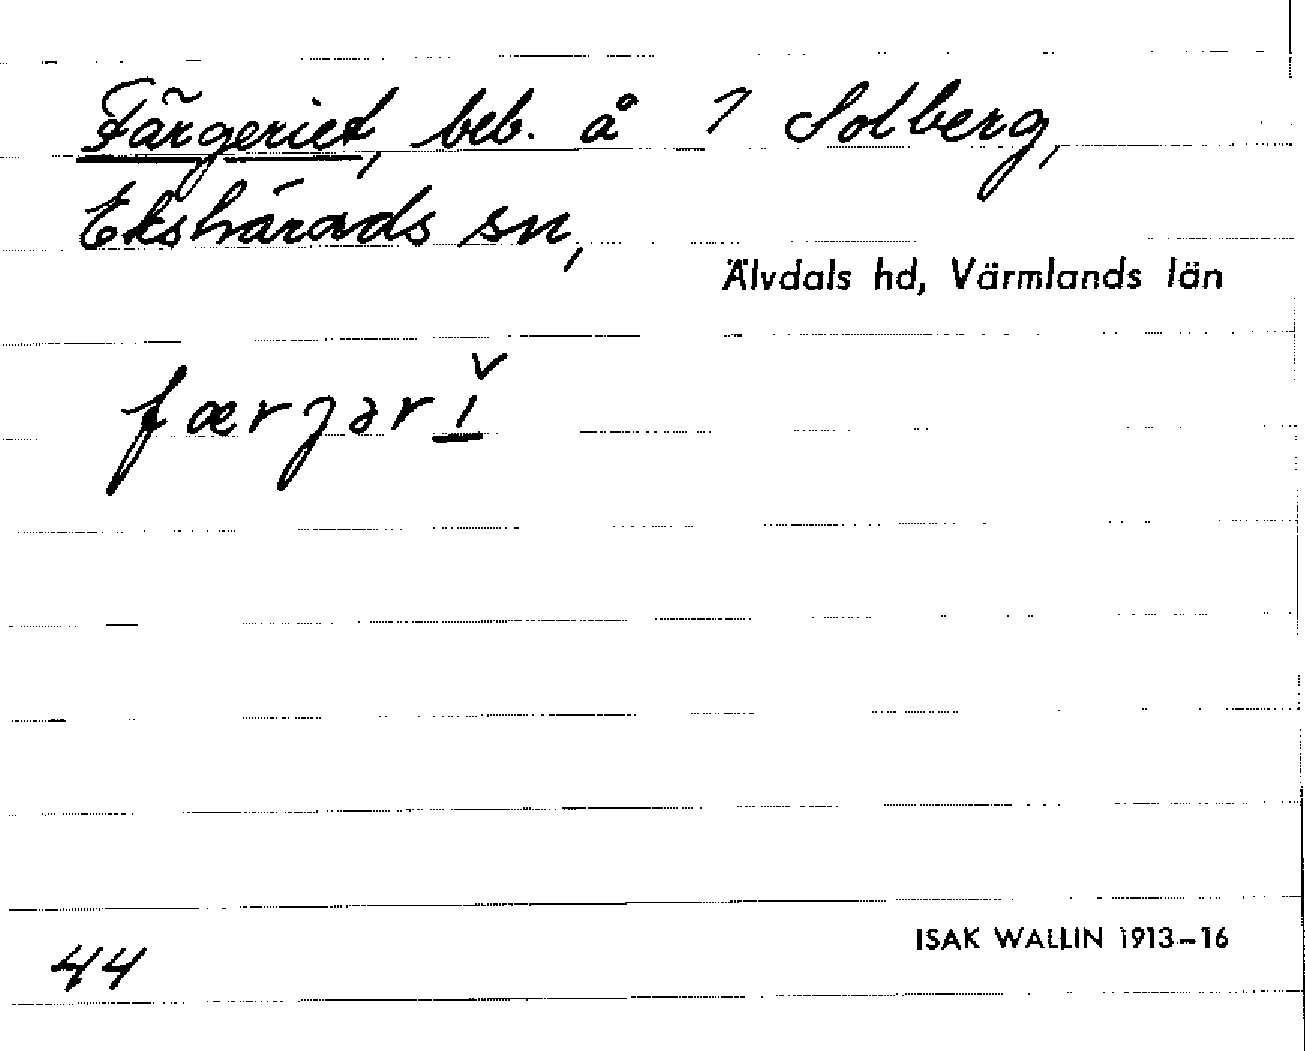 Färgeriet, beb. å 7 Solberg,
Ekshärads sn,
Älvdals hd, Värmlands län
færjəri
44
ISAK WALLIN 1913-16